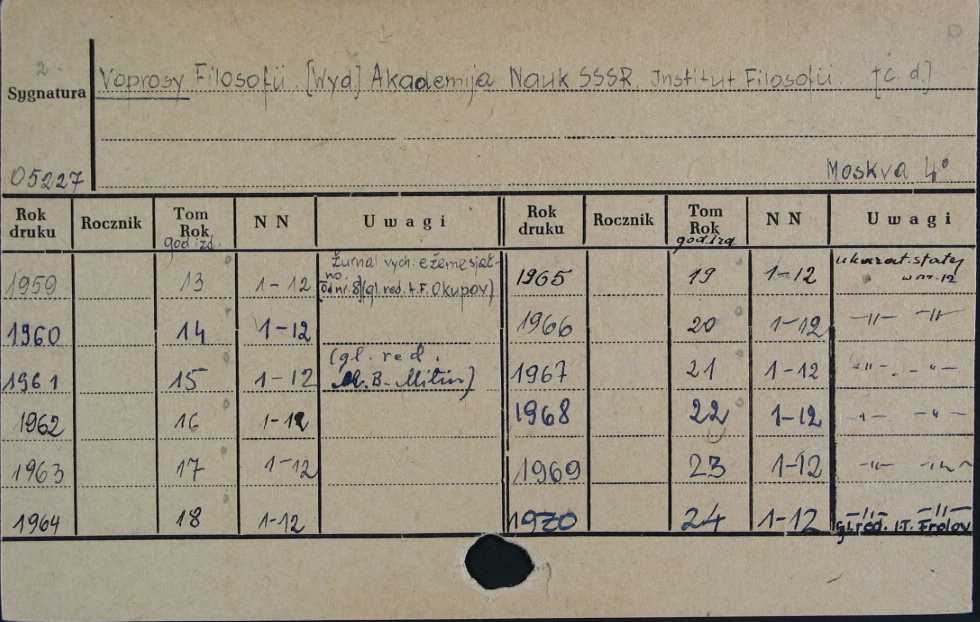 2.
Sygnatura
Voprosy Filosofii. [Wyd] Akademija Nauk SSSR. Institut Filosofii. [c. d.]
05227
Moskva 4°
Rok druku Rocznik Tom Rok god izd. N N Uwagi Rok druku Rocznik Tom Rok god izd N N Uwagi
1959 13 1-12 Žurnal vych. ežemesjačno. [od nr. 8](gl. red. A.F. Okupov) 1965 19 1-12 ukazat. statej w nr. 12
1960 14 1-12 1966 20 1-12 -"- -"-
1961 15 1-12 (gl. red. M. B. Mitin) 1967 21 1-12 -"- -"-
1962 16 1-12 1968 22 1-12 -"- -"-
1963 17 1-12 1969 23 1-12 -"- -"-
1964 18 1-12 1970 24 1-12 -"- -"- gl. red. I.T. Frolov